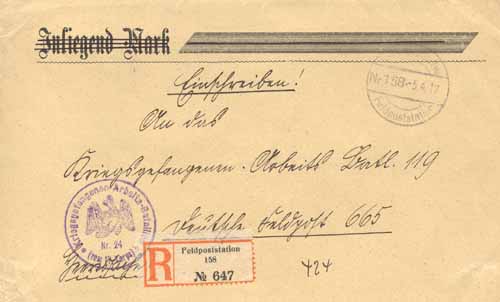 Inliegend Mark
Einschreiben!
Nr. 168 -5.4.17
Feldpoststation
An das
Kriegsgefangenen-Arbeits Batl. 119
Deutsche Feldpost 665
Kriegsgefangenen Arbeits-Bataillon
Nr. 24
Feldpoststation
158
R № 647
424